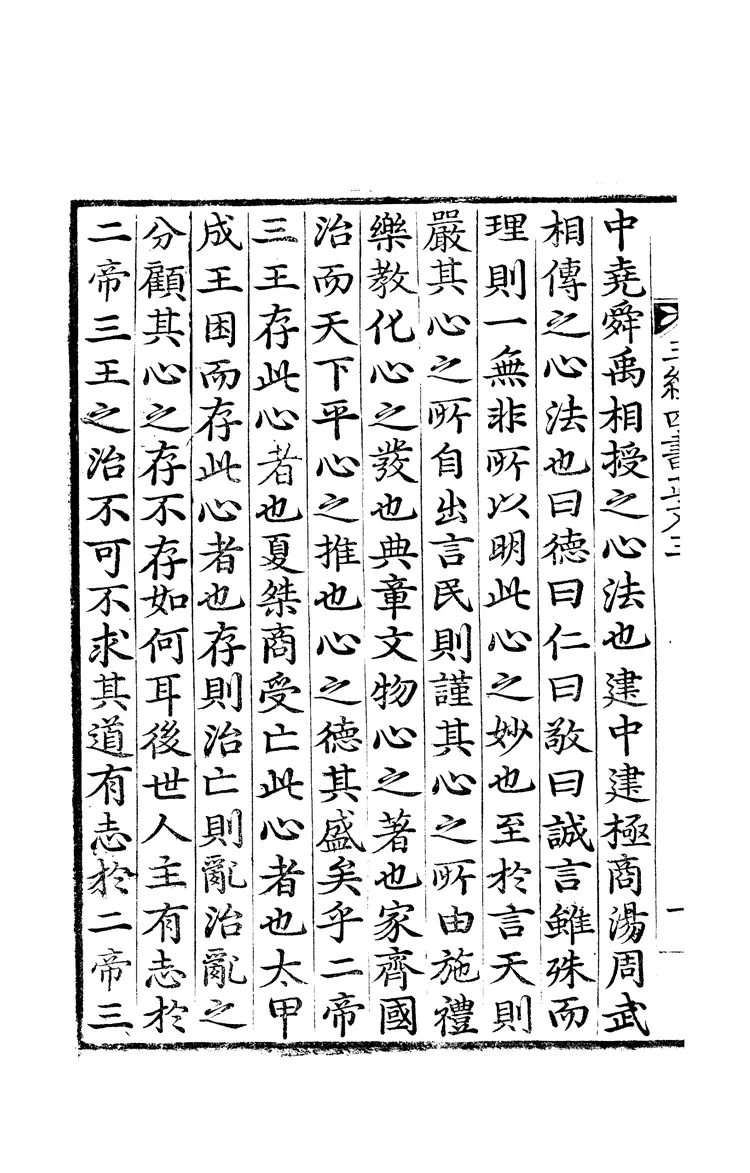 經四書正文三
一
中堯舜禹相授之心法也建中建極商湯周武
相傳之心法也曰德曰仁曰敬曰誠言雖殊而
理則一無非所以明此心之妙也至於言天則
嚴其心之所自出言民則謹其心之所由施禮
樂教化心之發也典章文物心之著也家齊國
治而天下平心之推也心之德其盛矣乎二帝
三王存此心者也夏桀商受亡此心者也太甲
成王困而存此心者也存則治亡則亂治亂之
分顧其心之存不存如何耳後世人主有志於
二帝三王之治不可不求其道有志於二帝三